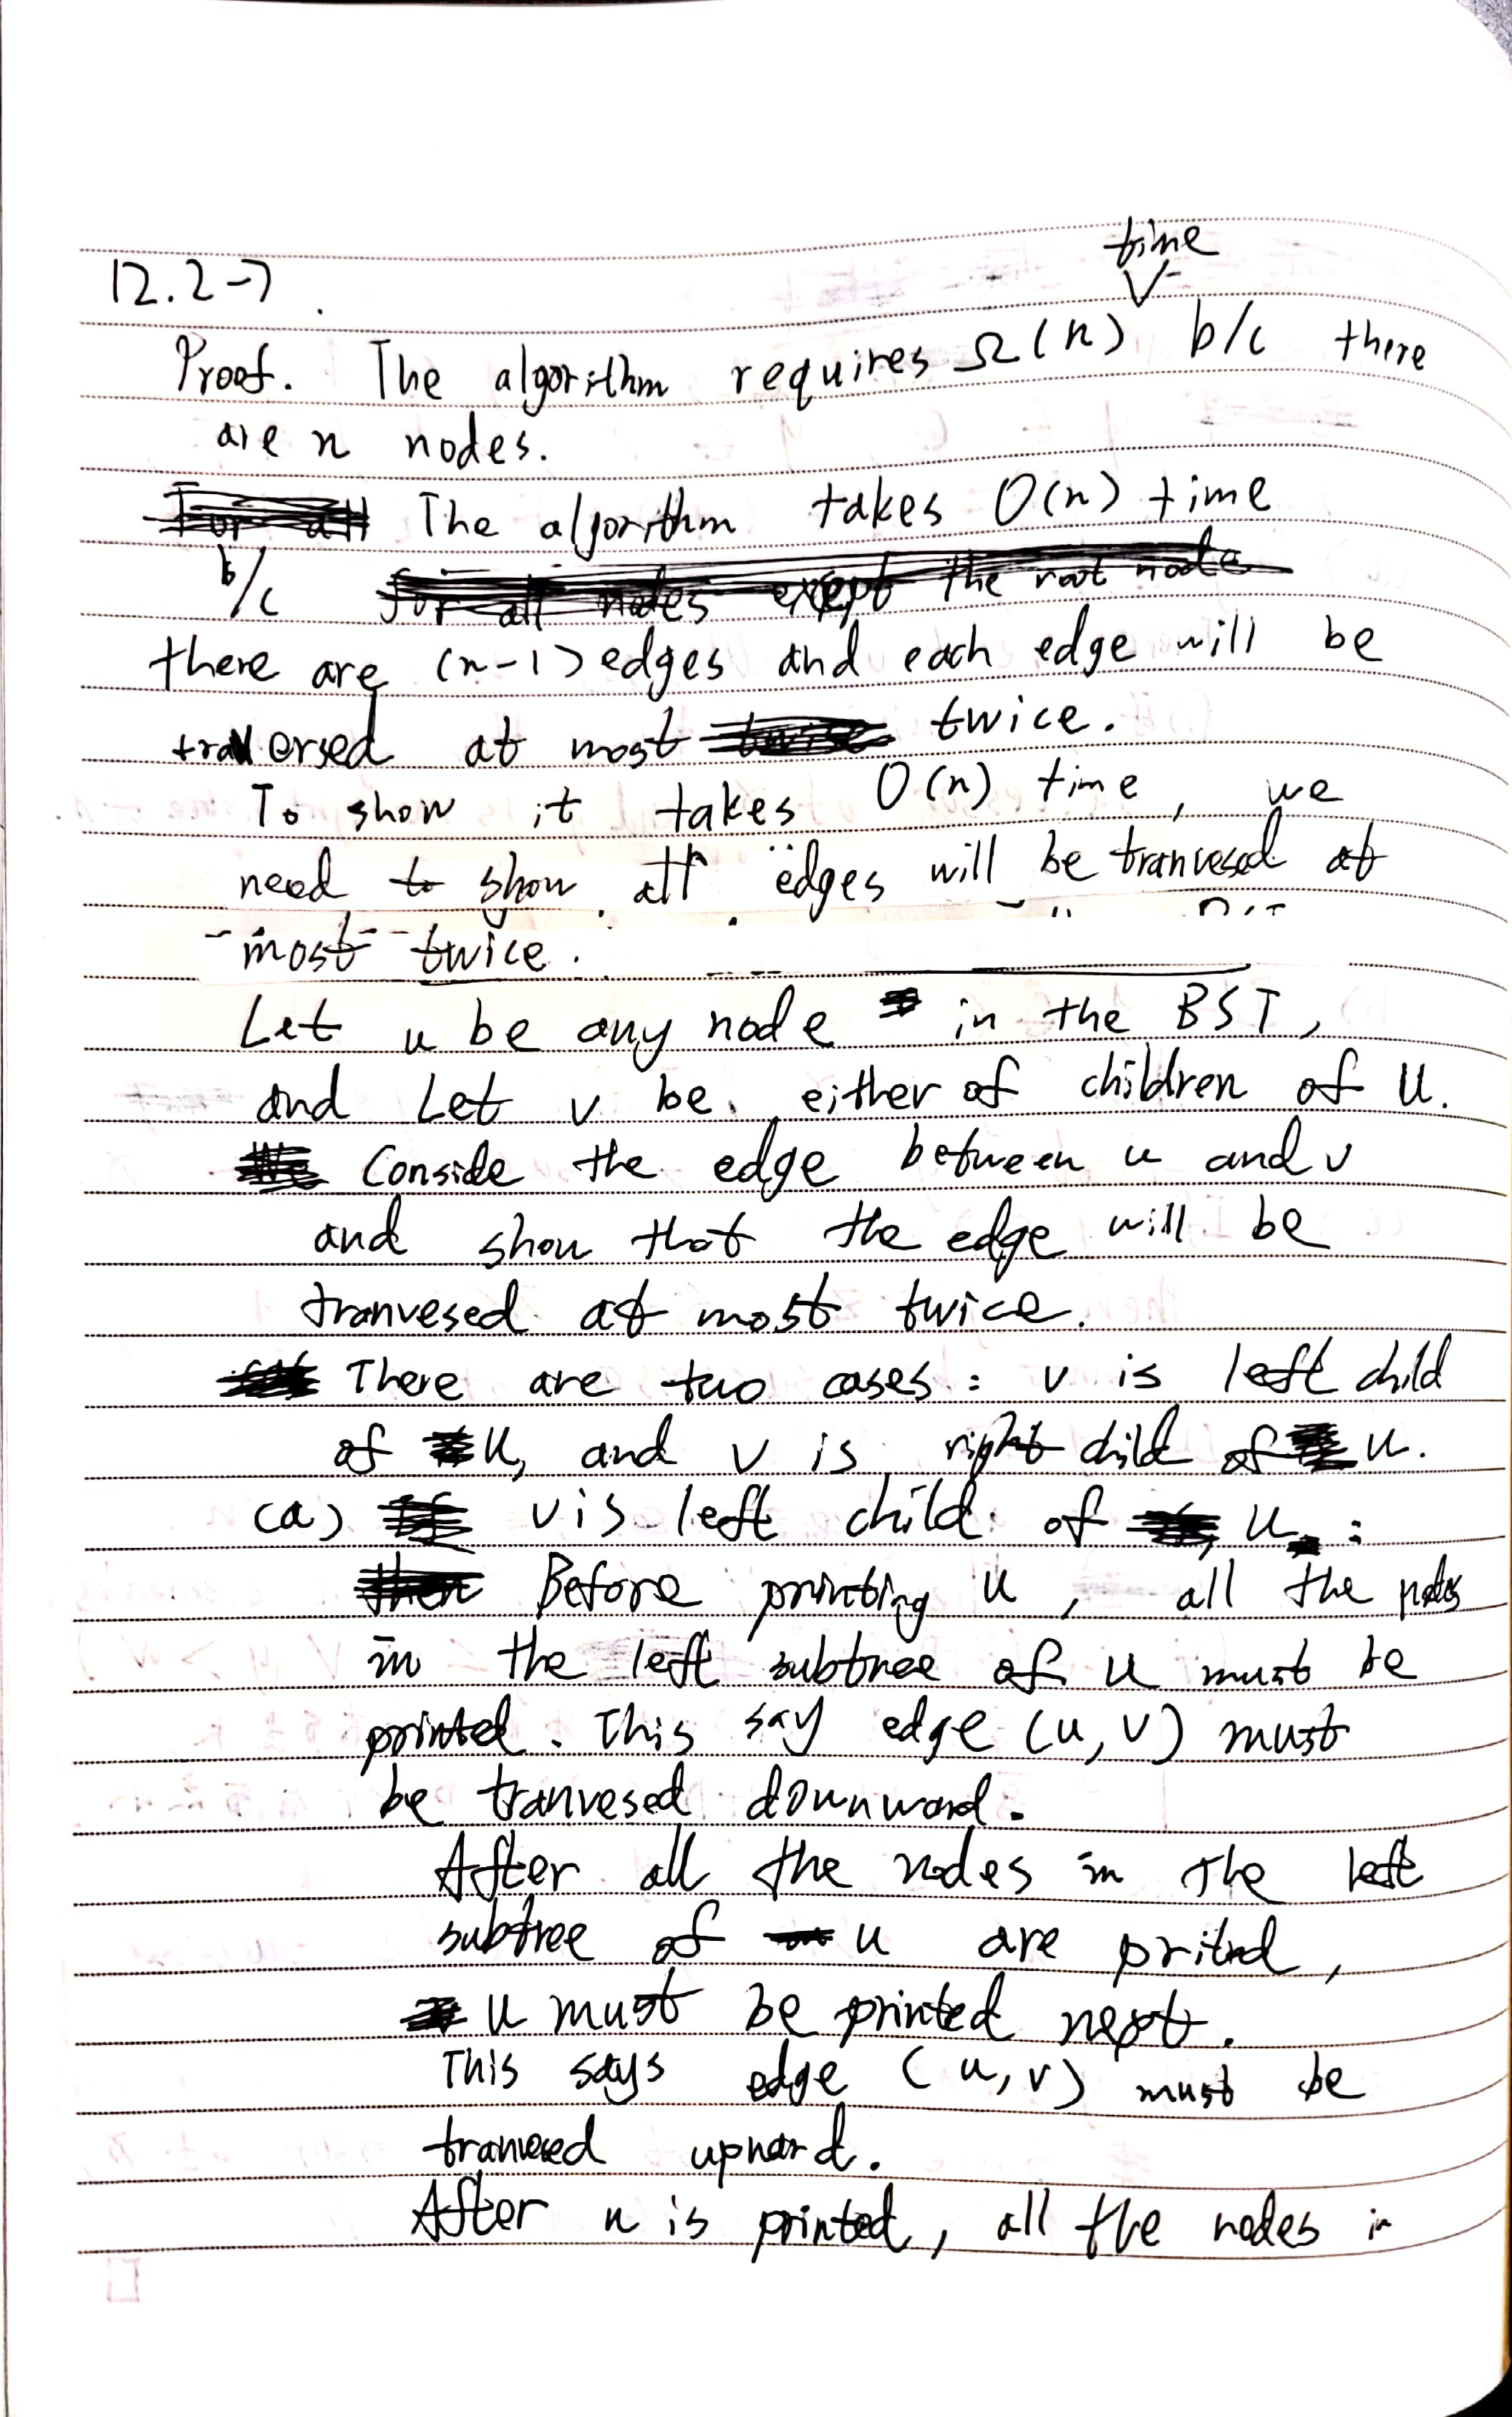 12.2-7
time
Proof. The algorithm requires Ω(n) b/c there
are n nodes.
For all The algorithm takes O(n) time
b/c for all nodes except the root node
there are (n-1) edges and each edge will be
traversed at most twice twice.
To show it takes O(n) time, we
need to show all edges will be tranvesed at
most twice.
Let u be any node in the BST,
and Let v be either of children of u.
Conside the edge between u and v
and show that the edge will be
tranvesed at most twice.
There are two cases: v is left child
of u, and v is right child of u.
(a) If v is left child of u:
then Before printing u, all the nodes
in the left subtree of u must be
printed. This say edge (u,v) must
be tranvesed downward.
After all the nodes in the left
subtree of u are prited,
u must be printed next.
This says edge (u,v) must be
tranvesed upward.
After u is printed, all the nodes in